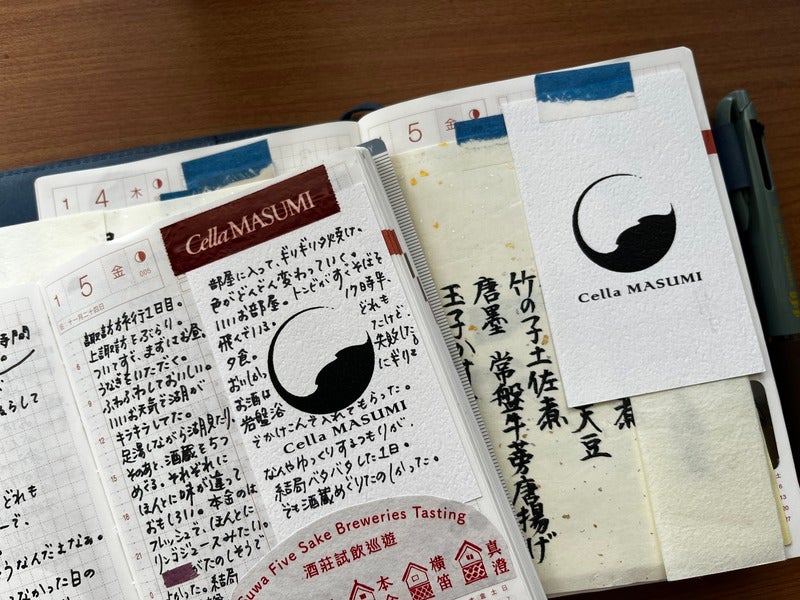 5 金
1 4 木
Cella MASUMI
1 5 金
005
旧 十一月二十四日
諏訪旅行1日目。
上諏訪をぶらり。
ついてすぐ、まずはお昼。
うなぎをいただく。
ふわふわしておいしい。
いいお天気で湖が
キラキラしてた。
足湯しながら湖見たり。
そのあと、酒蔵を5つ
めぐる。それぞれに
ほんとに味が違って
おもしろい。本金のは
フレッシュで、ほんとに
リンゴジュースみたい。
がたのしそうで
よかった。結局
部屋に入って、ギリギリ夕焼け。
色がどんどん変わっていく。
いいお部屋。トンビがすぐそばを
飛んでいる。
17時半、
夕食。
どれも
おいしかっ
たけど、
お酒は
失敗した。
岩盤浴
にギリギ
でかけこんで入れてもらった。
Cella MASUMI
なんやゆっくりするつもりが、
結局バタバタした1日。
でも酒蔵めぐりたのしかった。
Suwa Five Sake Breweries Tasting
酒莊試飲巡遊
本金
横笛
真澄
どれも
うなんだよなぁ。
なかった日の
Cella MASUMI
竹の子土佐煮
唐墨 常盤牛蒡唐揚げ
玉子かす
煮
大豆